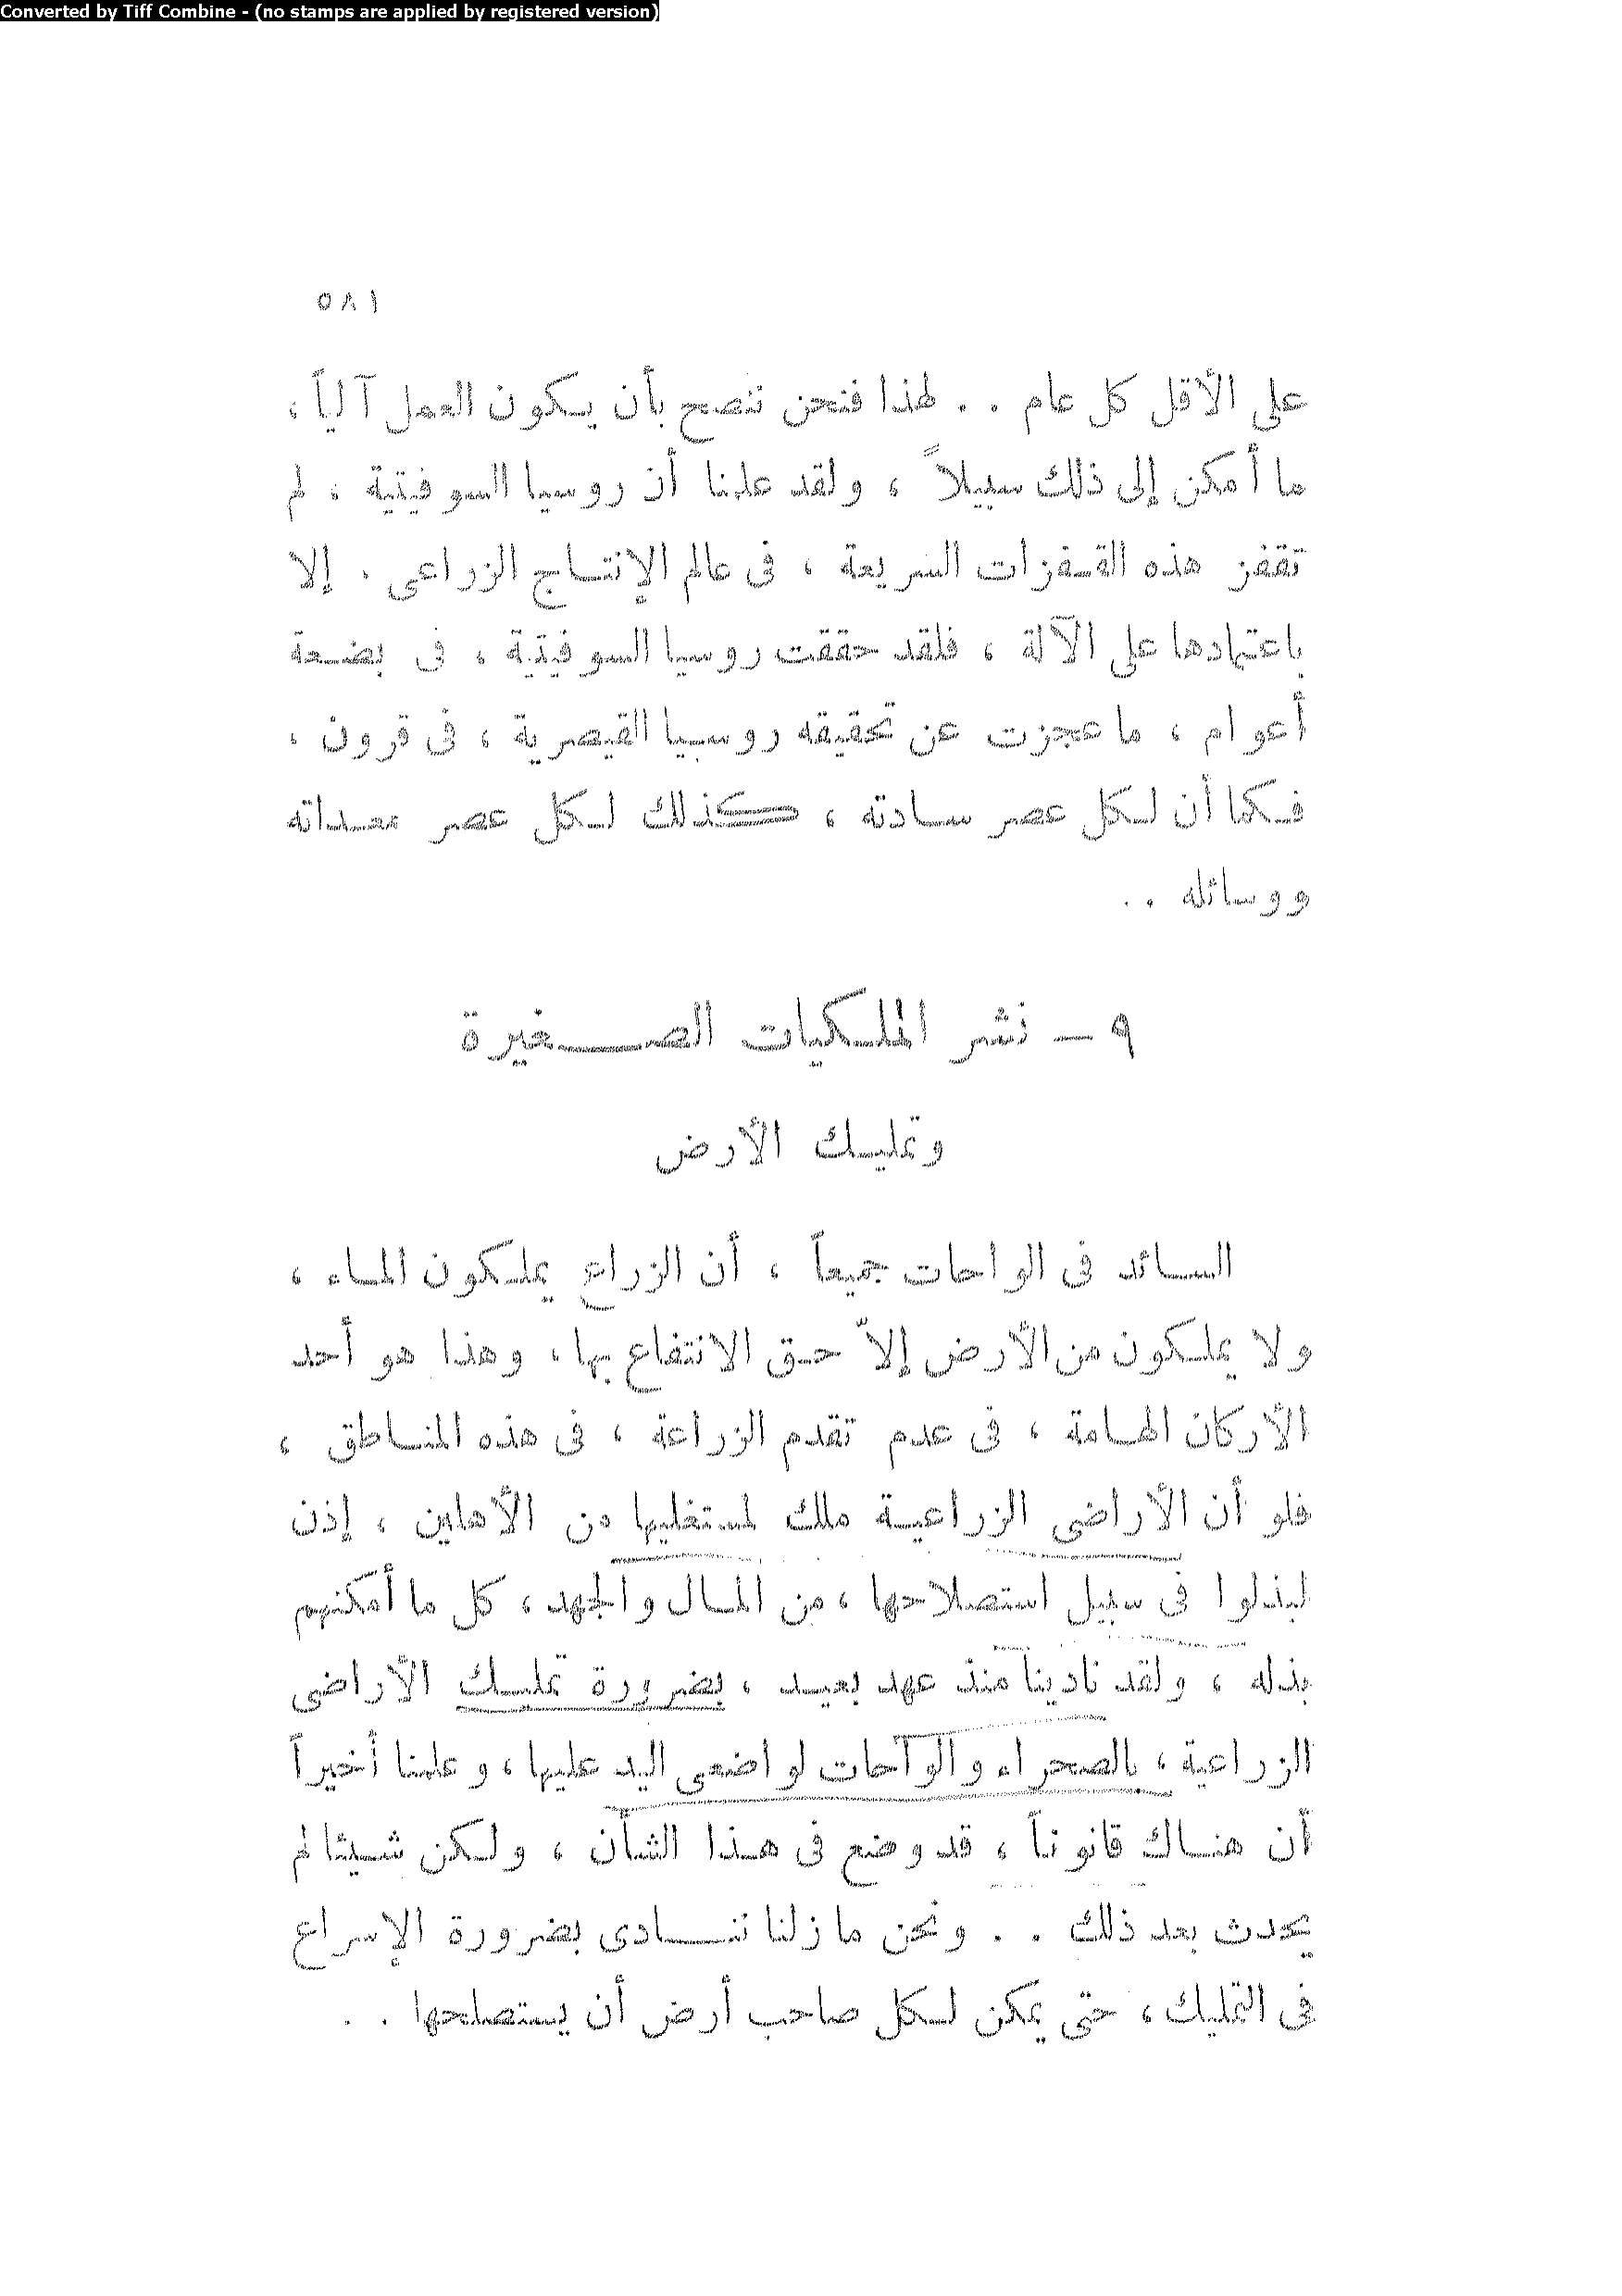 Converted by Tiff Combine - (no stamps are applied by registered version)
٥٨١
على الأقل كل عام . . لهذا فنحن ننصح بأن يكون العمل آلياً ،
ما أمكن إلى ذلك سبيلاً ، ولقد علمنا أن روسيا السوفيتية ، لم
تقفز هذه القفزات السريعة ، فى عالم الإنتاج الزراعى . إلا
باعتمادها على الآلة ، فلقد حققت روسيا السوفيتية ، فى بضعة
أعوام ، ما عجزت عن تحقيقه روسيا القيصرية ، فى قرون ،
فكما أن لكل عصر سادته ، كذلك لكل عصر معداته
ووسائله . .
٩ – نشر الملكيات الصغيرة
وتمليك الأرض
السائد فى الواحات جميعاً ، أن الزراع يملكون الماء ،
ولا يملكون من الأرض إلاّ حق الانتفاع بها ، وهذا هو أحد
الأركان الهامة ، فى عدم تقدم الزراعة ، فى هذه المناطق ،
فلو أن الأراضى الزراعية ملك لمستغليها من الأهلين ، إذن
لبذلوا فى سبيل استصلاحها ، من المال والجهد ، كل ما أمكنهم
بذله ، ولقد نادينا منذ عهد بعيد ، بضرورة تمليك الأراضى
الزراعية ، بالصحراء والواحات لواضعى اليد عليها ، وعلمنا أخيراً
أن هناك قانوناً ، قد وضع فى هذا الشأن ، ولكن شيئا لم
يحدث بعد ذلك . . ونحن ما زلنا ننادى بضرورة الإسراع
فى التمليك ، حتى يمكن لكل صاحب أرض أن يستصلحها . .